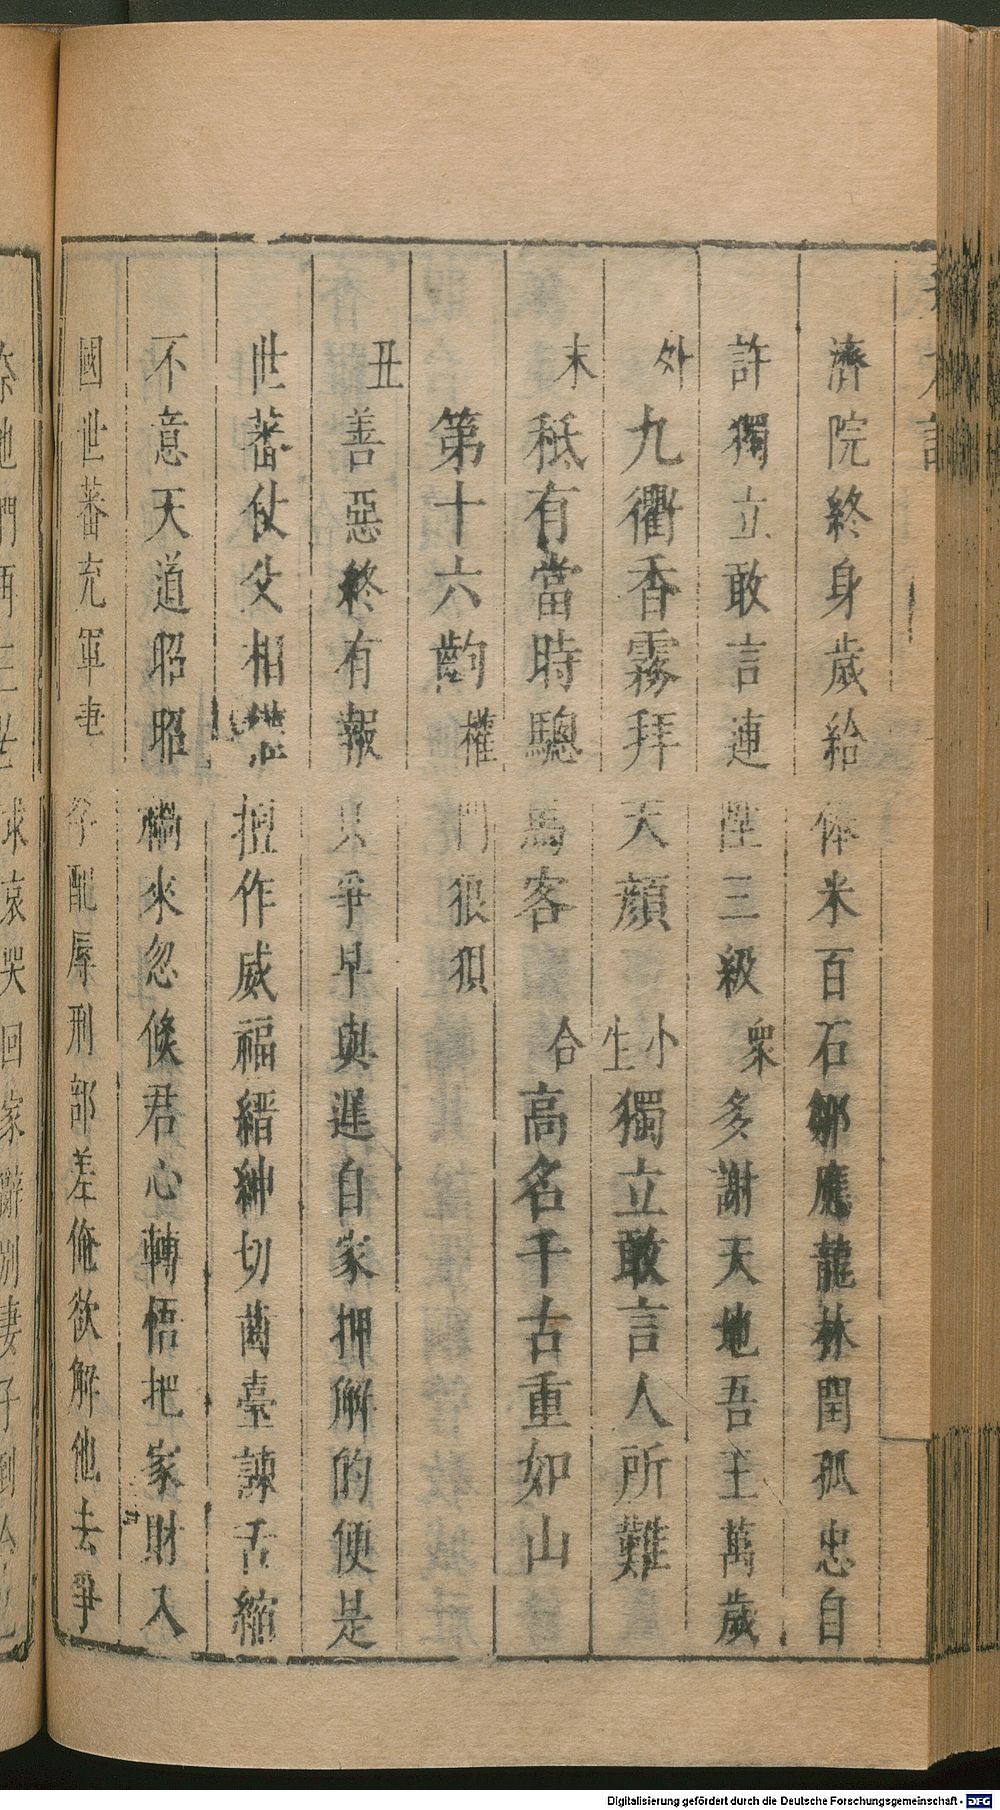 濟院終身歲給俸米百石鄒應龍林閏孤忠自
許獨立敢言連陞三級衆多謝天地吾主萬歲
外九衢香霧拜天顔小生獨立敢言人所難
末秪有當時驄馬客合高名千古重如山
第十六齣權門狼狽
丑善惡終有報只爭早與遲自家押解的便是
世蕃仗父相權擅作威福縉紳切齒臺諫舌縮
不意天道昭昭禍來忽倐君心轉悟把家財入
國世蕃充軍妻孥配辱刑部差俺欲解他去爭
奈他們兩三
哀哭回家辭別妻子
Digitalisierung gefördert durch die Deutsche Forschungsgemeinschaft - DFG